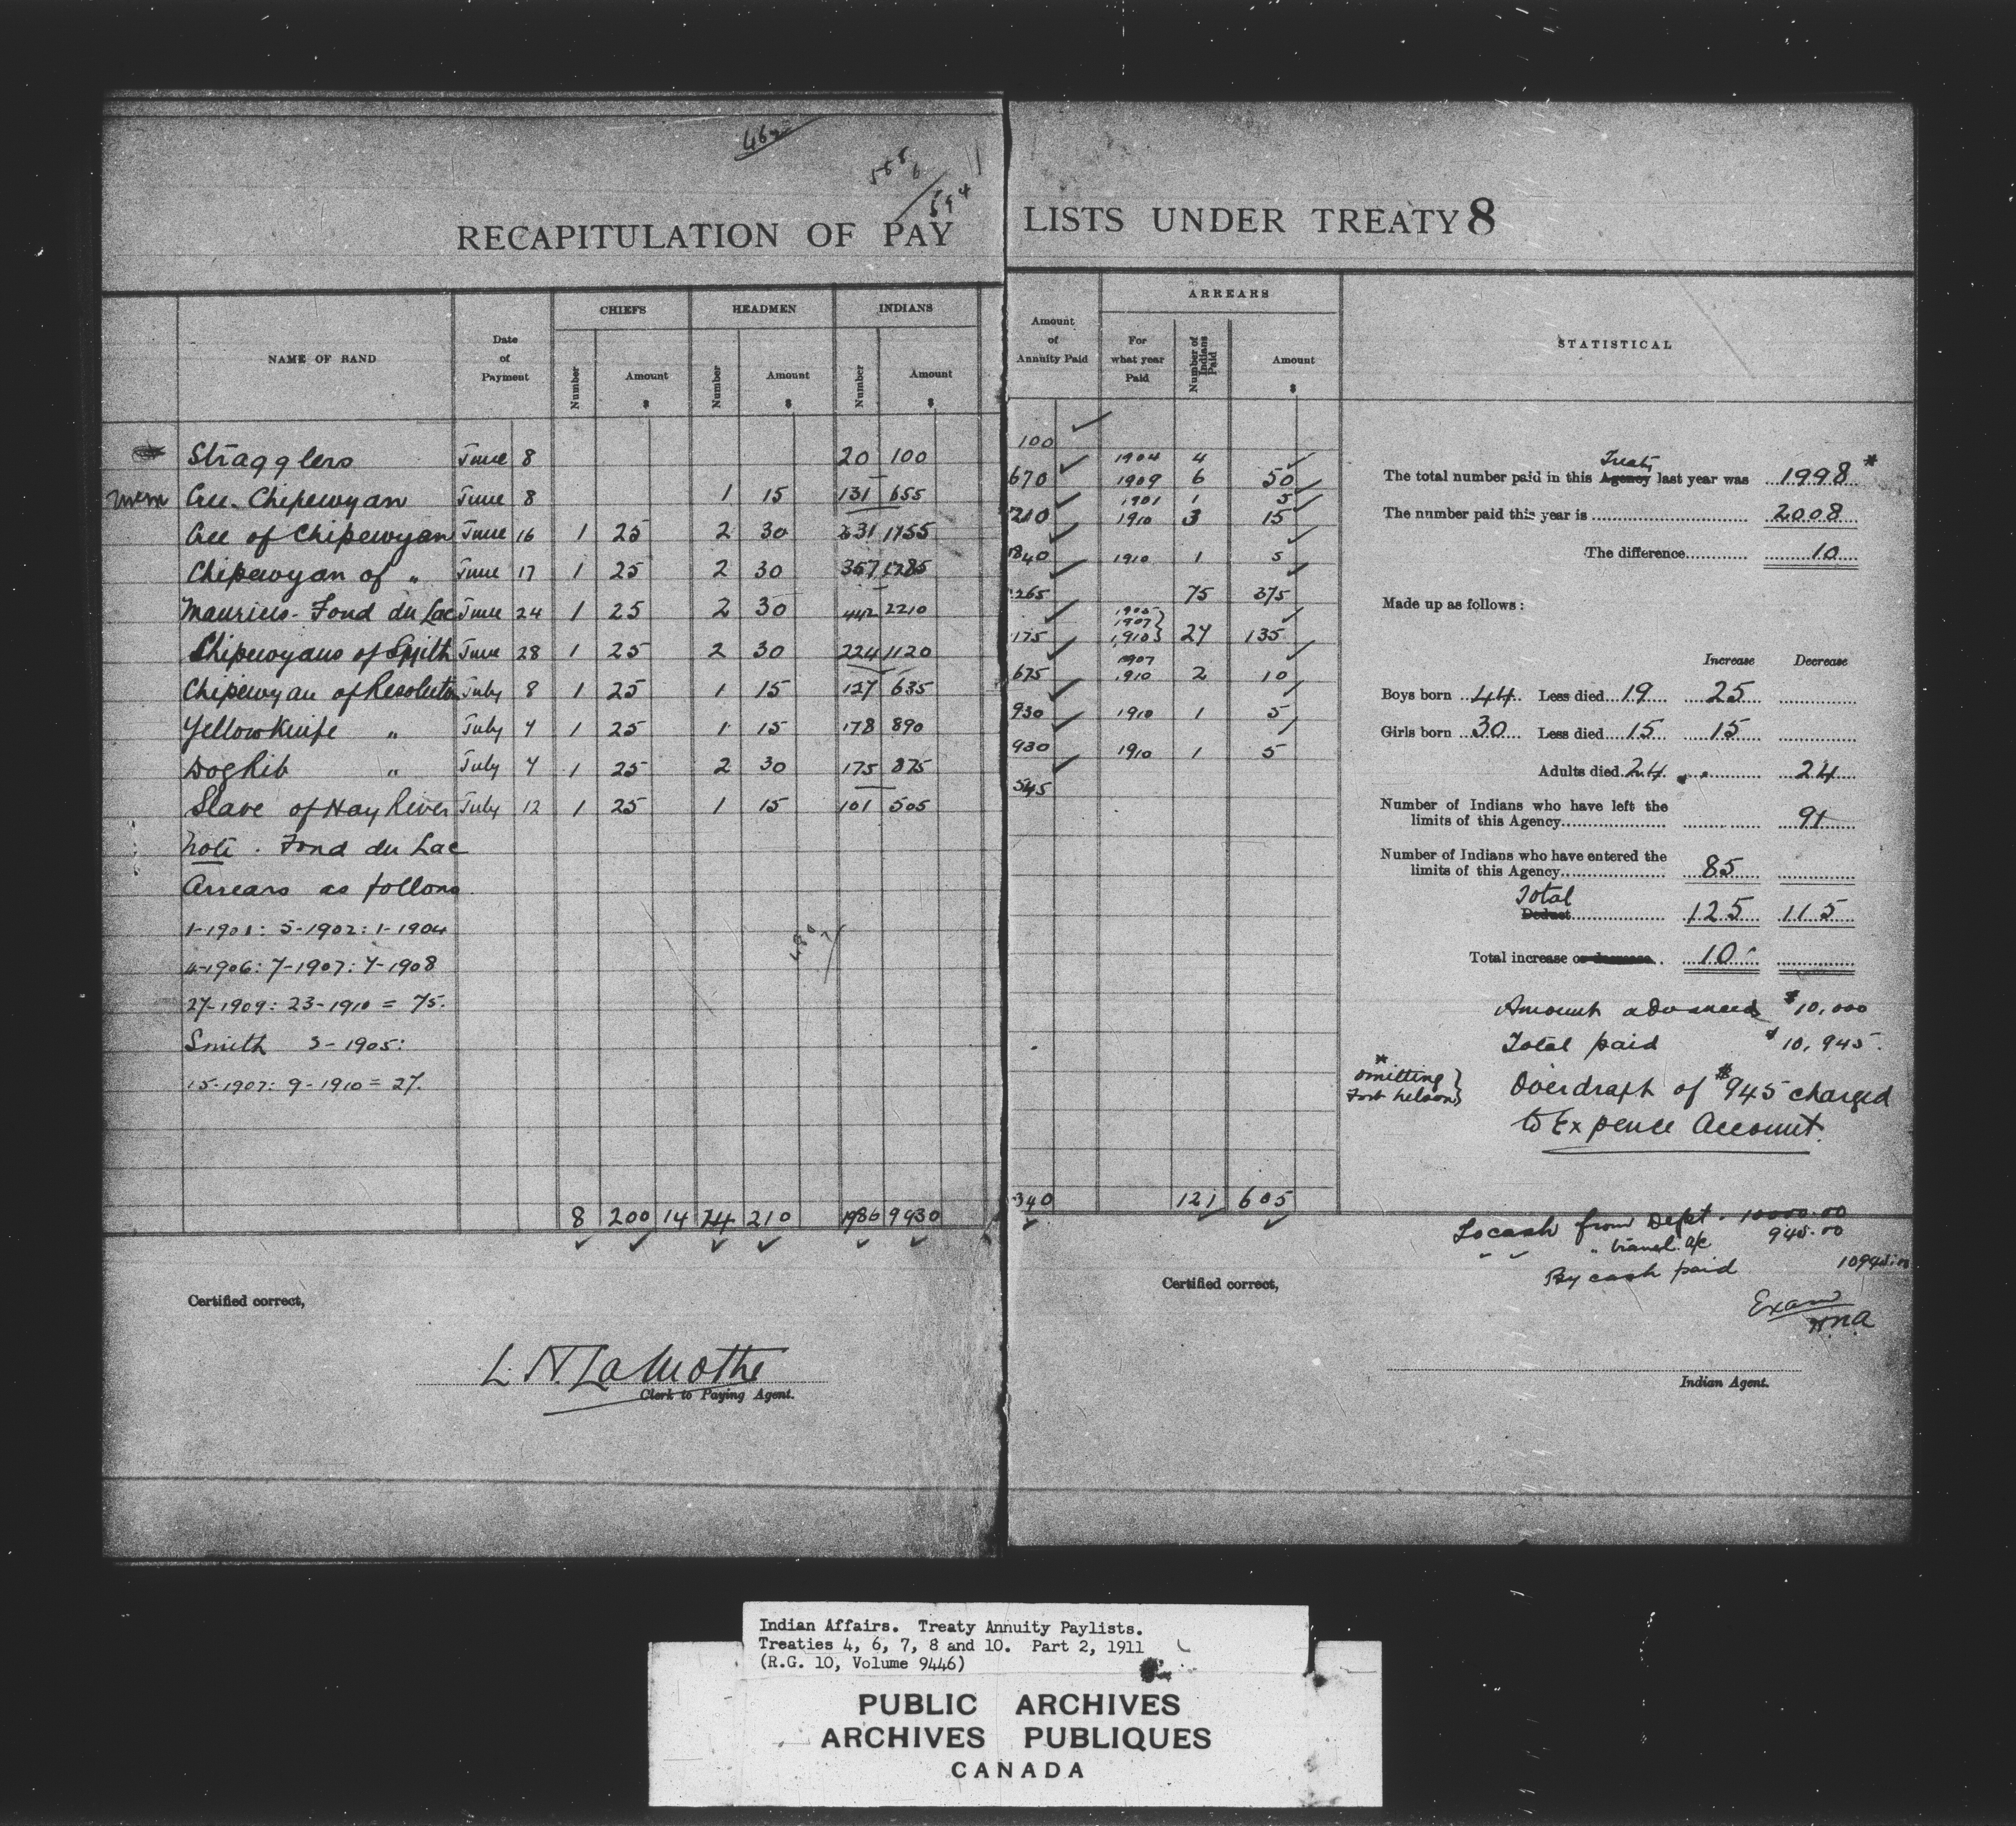 RECAPITULATION OF PAY LISTS UNDER TREATY 8
NAME OF BAND
Date of Payment
CHIEFS
Number
Amount $
HEADMEN
Number
Amount $
INDIANS
Number
Amount $
Amount of Annuity Paid
ARREARS
For what year Paid
Number of Indians Paid
Amount $
STATISTICAL
Stragglers June 8 20 100 100
Cree-Chipewyan June 8 1 15 131 655 670 1904 4 1909 6 50
Cree of Chipewyan June 16 1 25 2 30 1901 1 5 1910 3 15
Chipewyan of " June 17 1 25 2 30 1910 1 5
Maurices-Fond du Lac June 24 1 25 2 30 442 2210 265 75 375
Chipewyans of Smith June 28 1 25 2 30 224 1120 175 1905 1907 1910 } 27 135
Chipewyan of Resolution July 8 1 25 1 15 127 635 675 1907 1910 2 10
Yellowknife " July 4 1 25 1 15 178 890 930 1910 1 5
Dog Rib " July 4 1 25 2 30 175 875 930 1910 1 5
Slave of Hay River July 12 1 25 1 15 101 505 545
Note. Fond du Lac
Arrears as follows
1-1901: 5-1902: 1-1904
4-1906: 7-1907: 7-1908
27-1909: 23-1910 = 75.
Smith 3-1905:
15-1907: 9-1910 = 27.
8 200 14 14 210 1986 9930 340 121 605
Certified correct,
L. N. LaMothe
Clerk to Paying Agent.
Treaty
The total number paid in this Agency last year was 1998 *
The number paid this year is 2008
The difference 10
Made up as follows:
Increase Decrease
Boys born 44 Less died 19 25
Girls born 30 Less died 15 15
Adults died 24 24
Number of Indians who have left the
limits of this Agency 91
Number of Indians who have entered the
limits of this Agency 85
Total
Deduct 125 115
Total increase or decrease 10
Amount advanced $10,000
Total paid $10,945.
* omitting Fort Nelson }
Overdraft of $945 charged
to Expence Account.
To cash from Dept. 10000.00
" travel. a/c 945.00
By cash paid 10945.00
Exam
H.N.A
Certified correct,
Indian Agent.
Indian Affairs. Treaty Annuity Paylists.
Treaties 4, 6, 7, 8 and 10. Part 2, 1911
(R.G. 10, Volume 9446)
PUBLIC ARCHIVES
ARCHIVES PUBLIQUES
CANADA